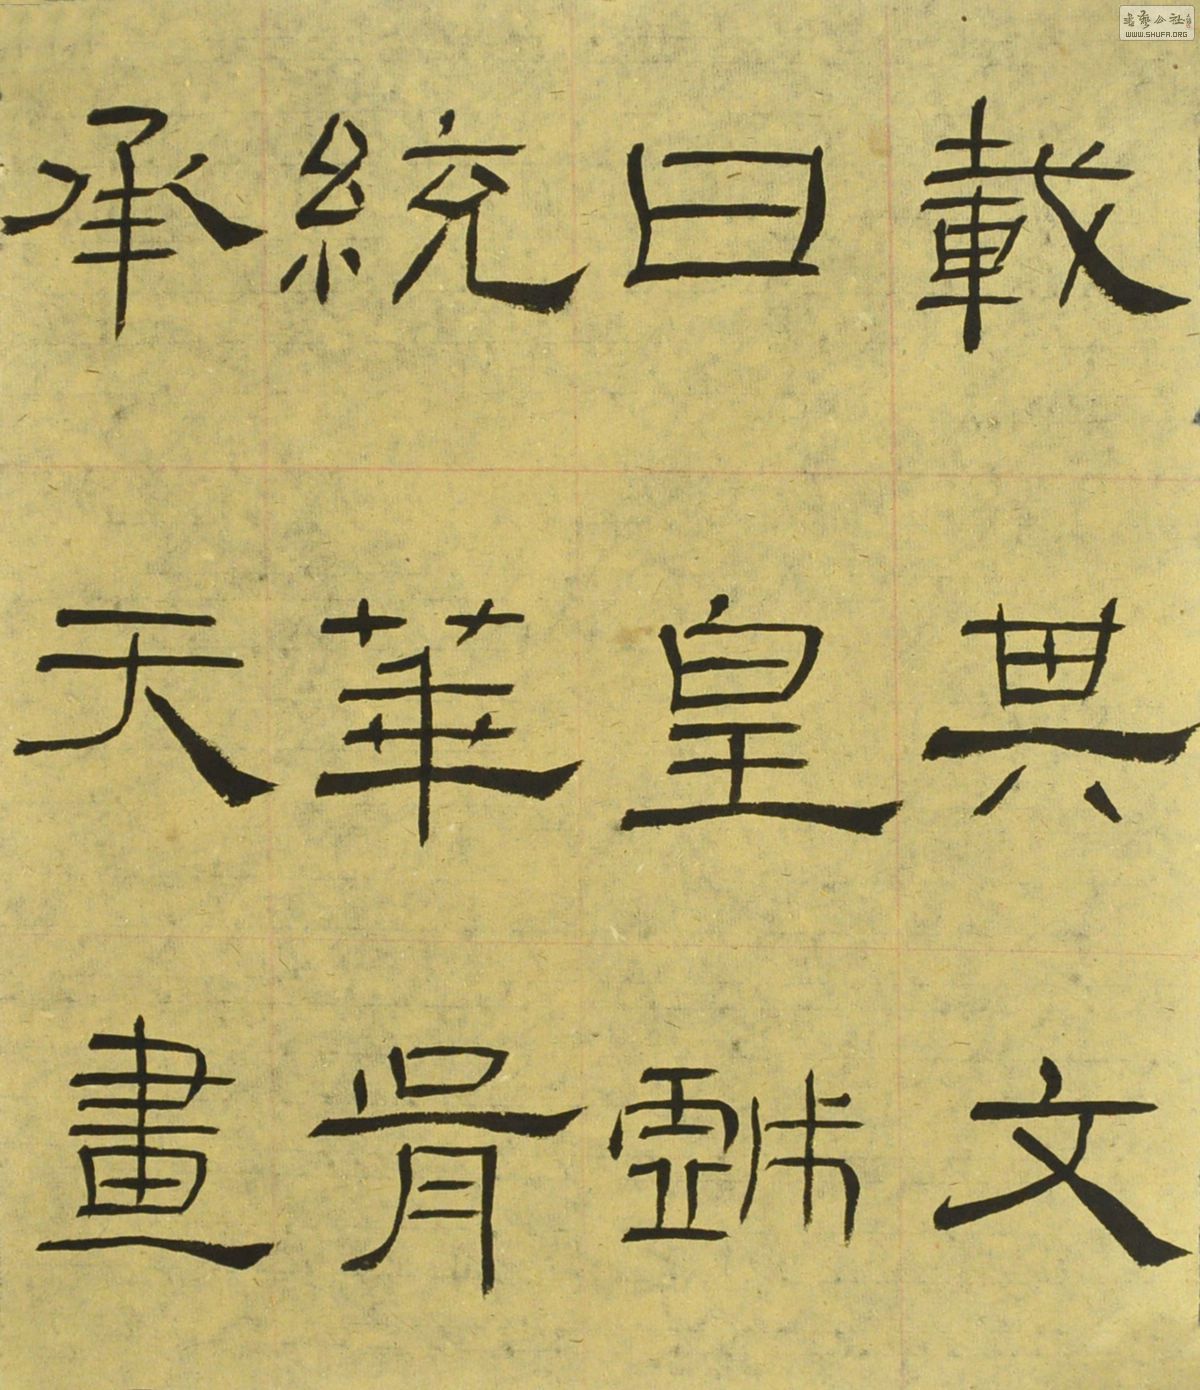 載其文
曰皇戲
統華胥
承天畫
書藝公社
WWW.SHUFA.ORG